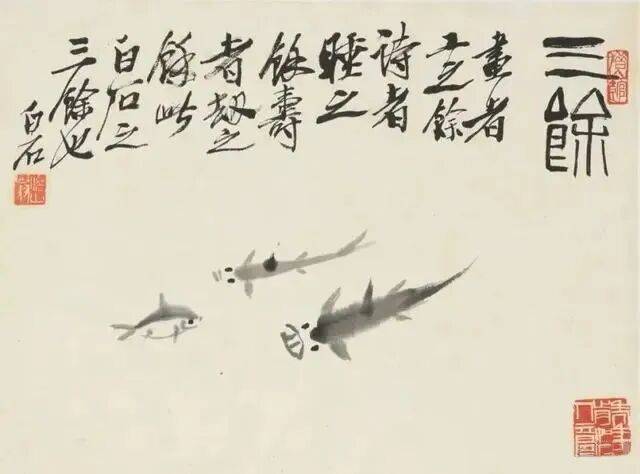 三餘
畫者
工之餘
诗者
睡之
餘壽
者劫之
餘此
白石之
三餘也
白石